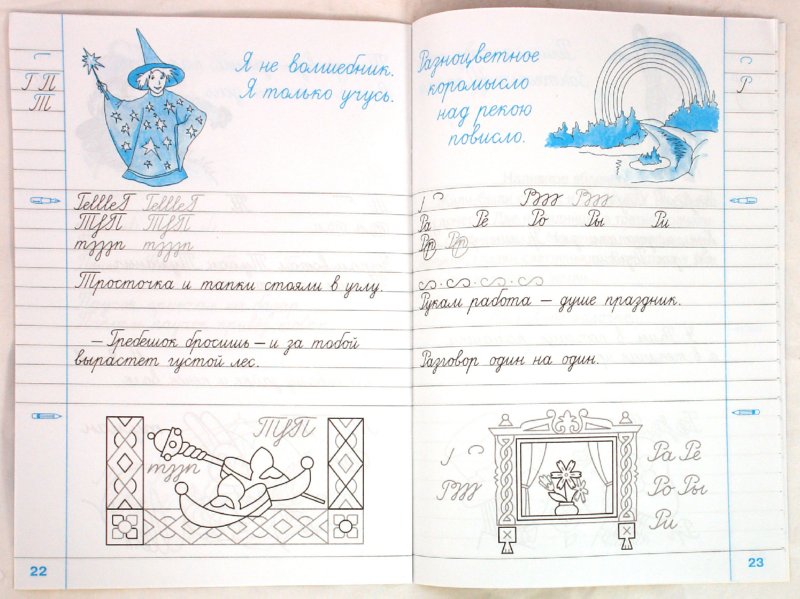 Г П
Т
Я не волшебник.
Я только учусь.
ТУП ТУП
Тросточка и тапки стояли в углу.
— Гребешок бросишь — и за тобой
вырастет густой лес.
ТУП
22
Р
Разноцветное
коромысло
над рекою
повисло.
Ра Ре Ро Ры Ри
Рукам работа — душе праздник.
Разговор один на один.
Ра Ре
Ро Ры
Ри
23